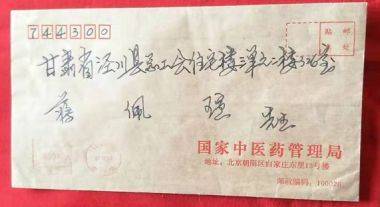 744300
贴邮
票处
甘肃省泾川县总工会住宅楼三单元二楼
佩
国家中医药管理局
地址：北京朝阳区白家庄东里13号楼
邮政编码：100026